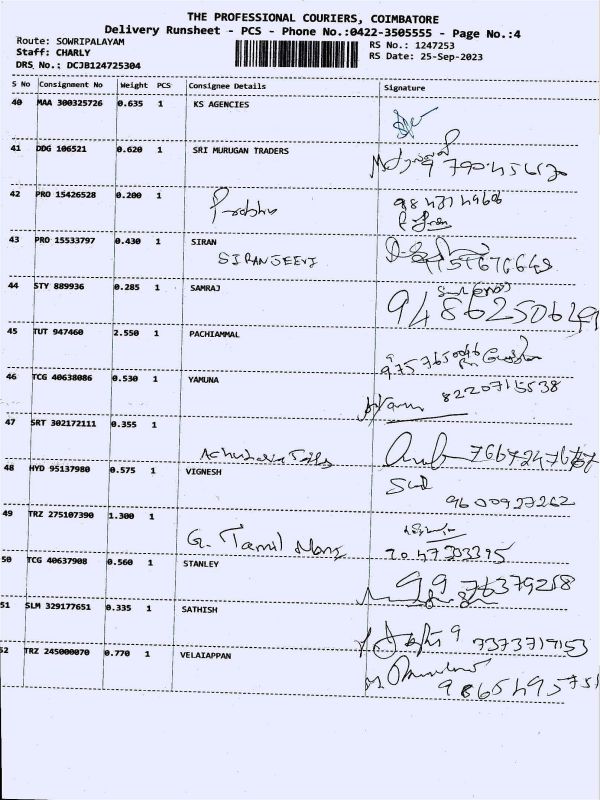 THE PROFESSIONAL COURIERS, COIMBATORE
Delivery Runsheet - PCS - Phone No.:0422-3505555 - Page No.:4
Route: SOWRIPALAYAM
RS No.: 1247253
Staff: CHARLY
RS Date: 25-Sep-2023
DRS No.: DCJB124725304
S No Consignment No Weight PCS Consignee Details Signature
40 MAA 300325726 0.635 1 KS AGENCIES
41 DDG 106521 0.620 1 SRI MURUGAN TRADERS
42 PRO 15426528 0.200 1
Prabhu
43 PRO 15533797 0.430 1 SIRAN
SIRANJEEVI
44 STY 889936 0.285 1 SAMRAJ
9486250649
45 TUT 947460 2.550 1 PACHIAMMAL
46 TCG 40638086 0.530 1 YAMUNA
8220715538
47 SRT 302172111 0.355 1
48 HYD 95137980 0.575 1 VIGNESH
9600927262
49 TRZ 275107390 1.300 1
G. Tamil Mani
50 TCG 40637908 0.560 1 STANLEY
9976379218
51 SLM 329177651 0.335 1 SATHISH
7373719153
52 TRZ 245000070 0.770 1 VELAIAPPAN